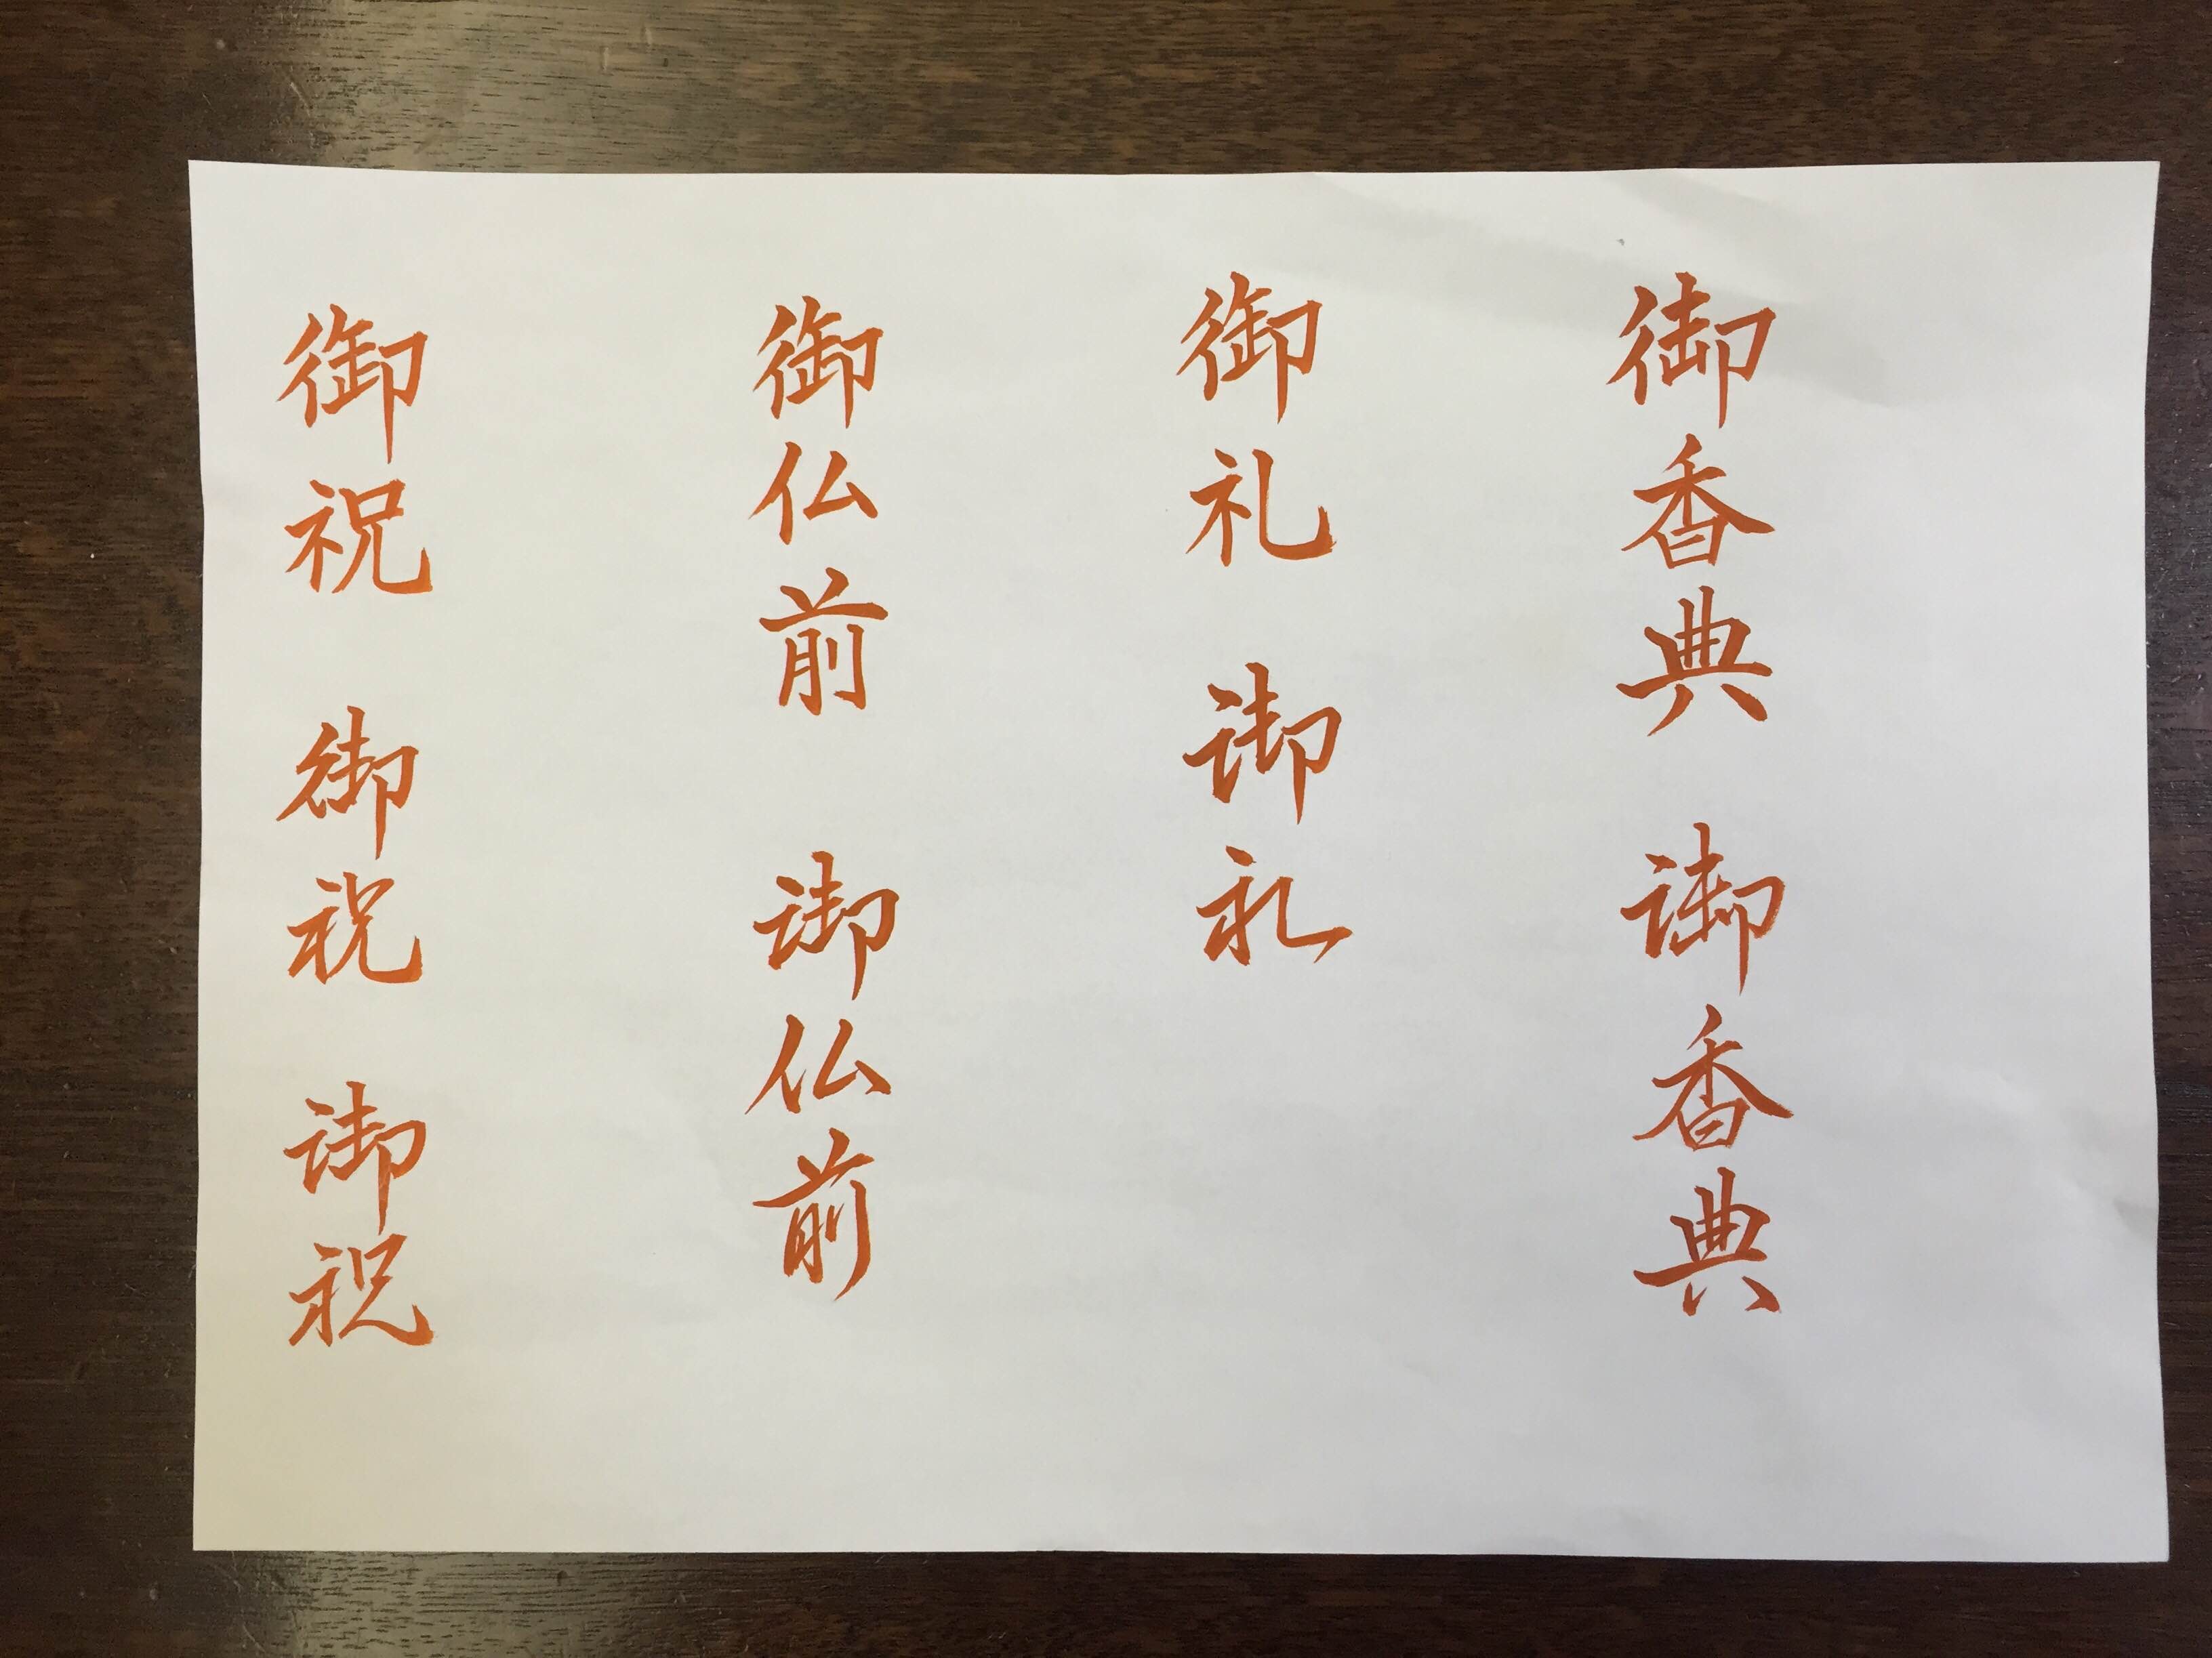 御香典 御香典
御礼 御礼
御仏前 御仏前
御祝 御祝 御祝